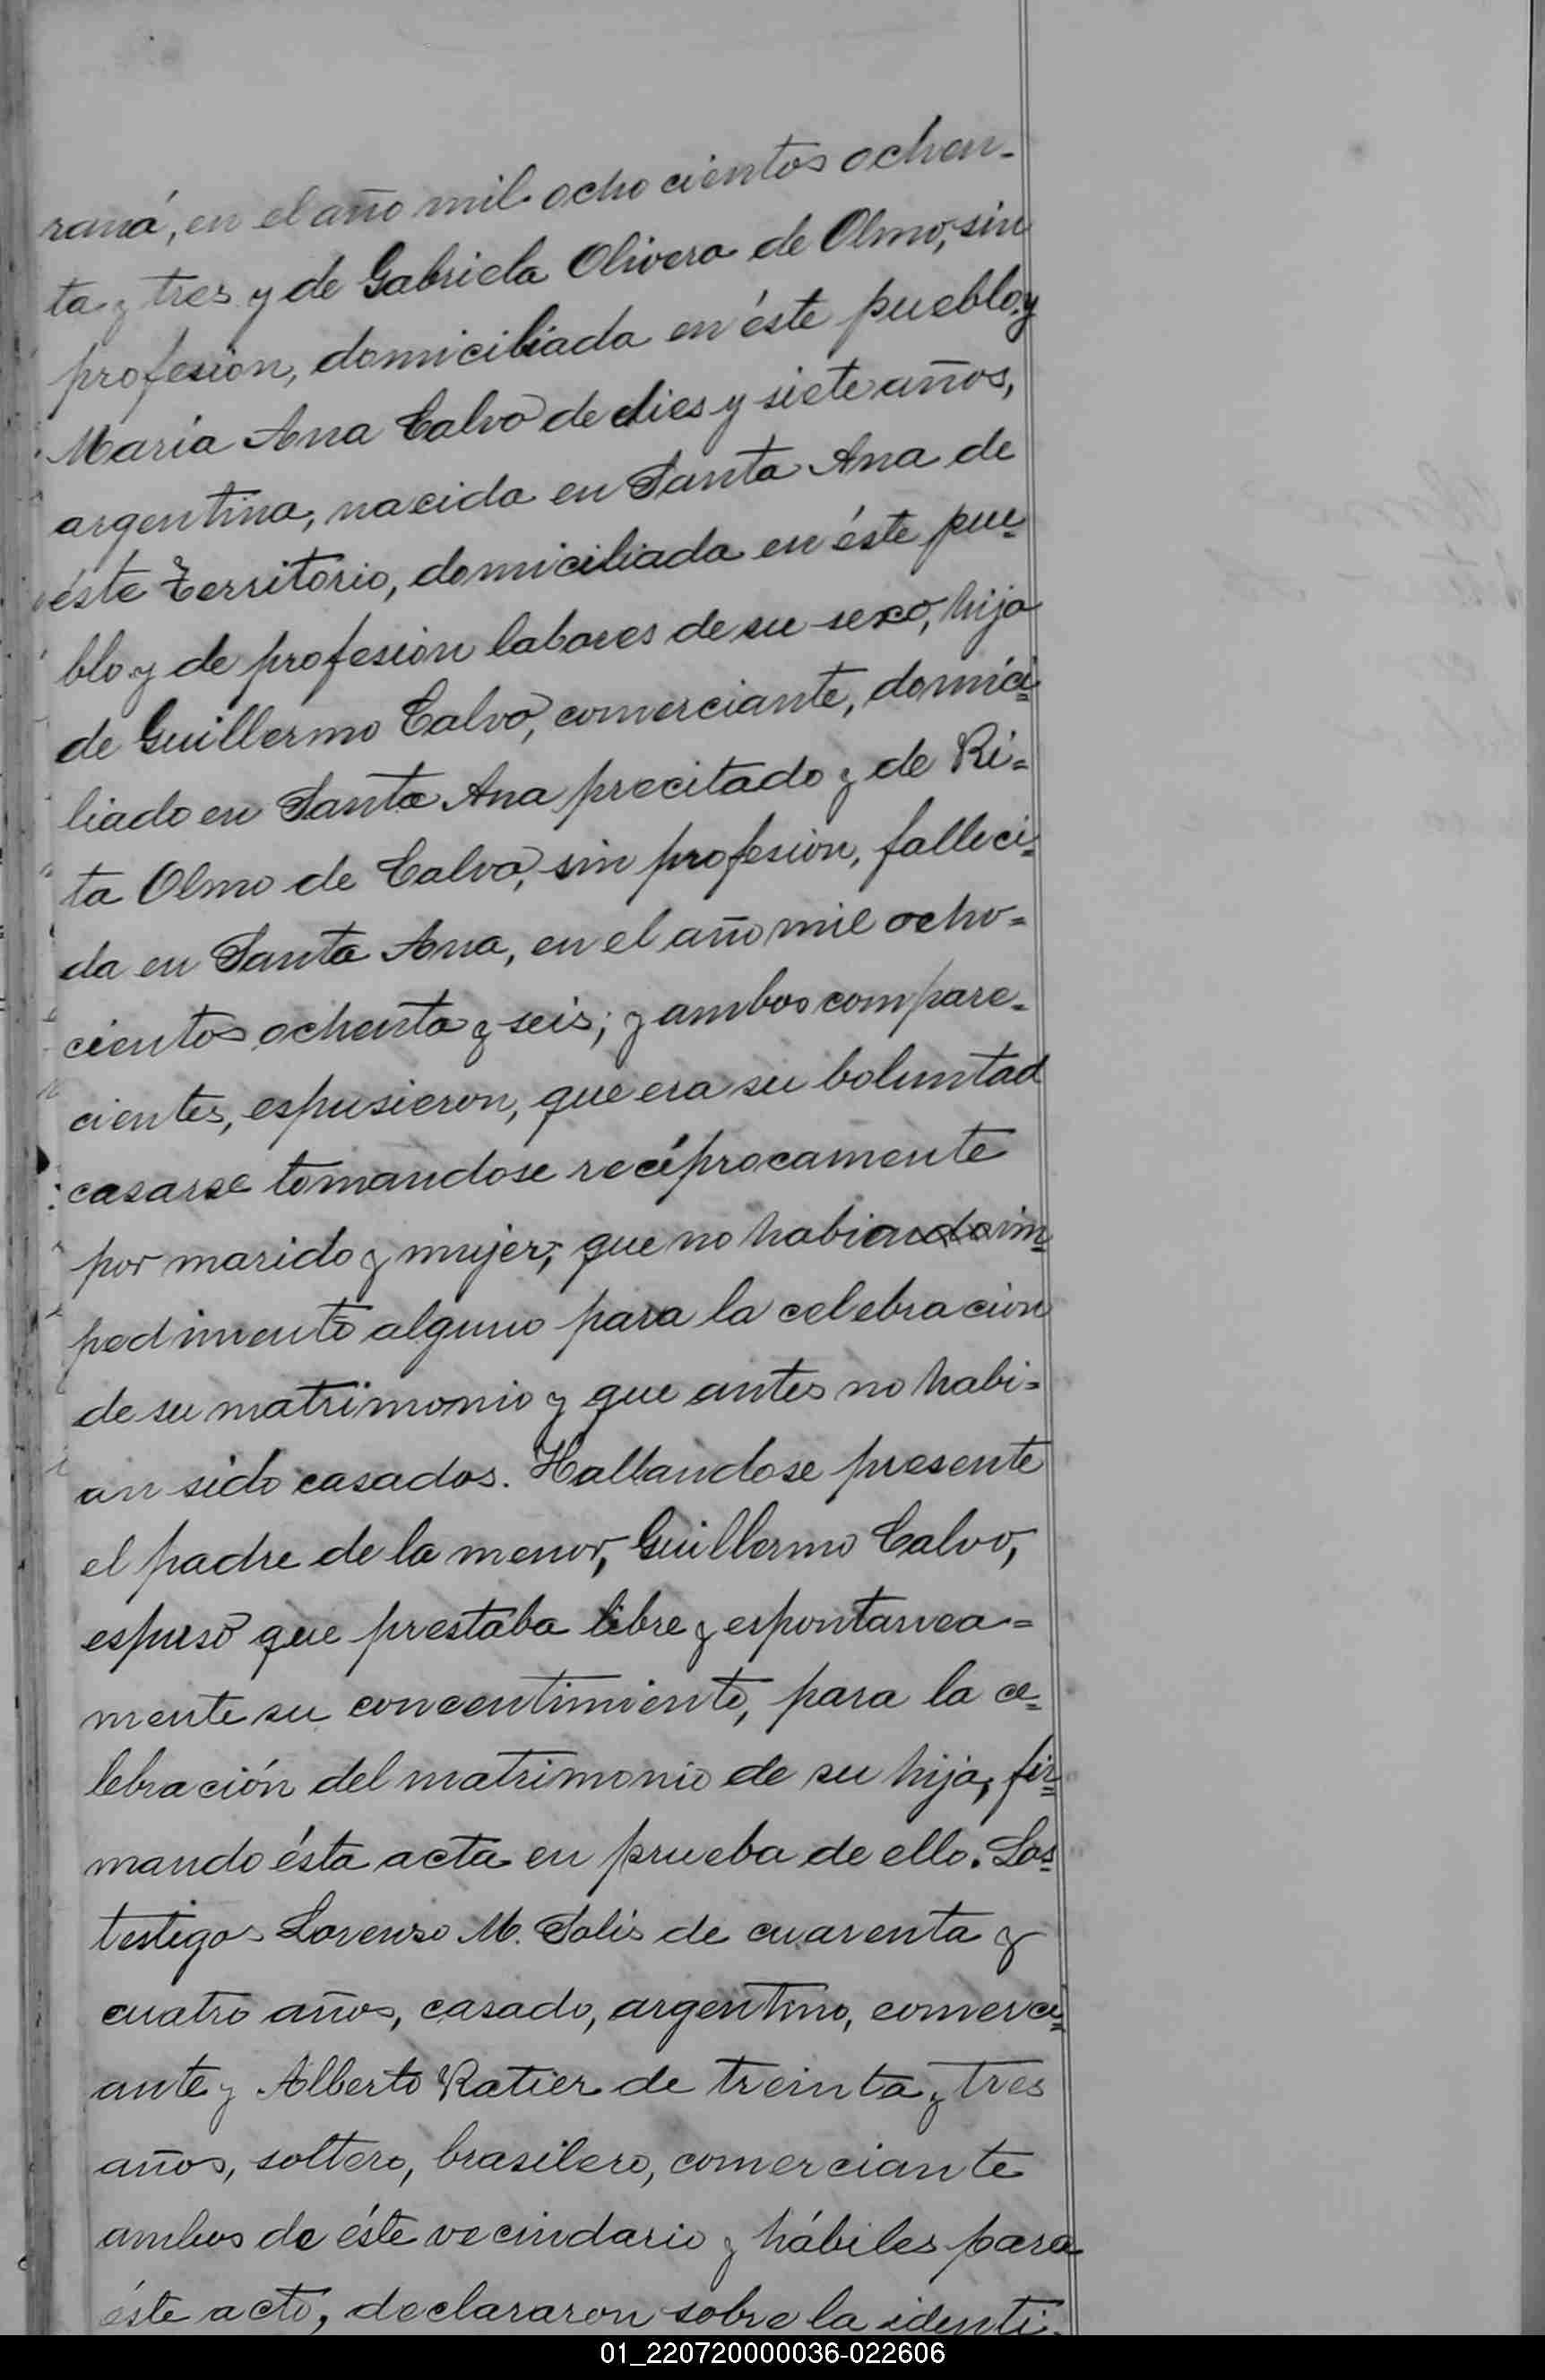 raná, en el año mil ochocientos ochen-
ta y tres y de Gabriela Olivera de Olmo, sin
profesion, domiciliada en éste pueblo y
María Ana Calvo de dies y siete años,
argentina, nacida en Santa Ana de
éste Territorio, domiciliada en éste pue=
blo y de profesion labores de su sexo, hija
de Guillermo Calvo, comerciante, domici=
liado en Santa Ana precitado y de Ri=
ta Olmo de Calvo, sin profesion, falleci=
da en Santa Ana, en el año mil ocho=
cientos ochenta y seis; y ambos compare=
cientes, espusieron, que era su boluntad
casarse tomandose recíprocamente
por marido y mujer; que no habiendo im=
pedimento alguno para la celebracion
de su matrimonio y que antes no habi=
an sido casados. Hallandose presente
el padre de la menor, Guillermo Calvo,
espuso que prestaba libre y espontanea=
mente su concentimiento, para la ce=
lebración del matrimonio de su hija, fir=
mando ésta acta en prueba de ello. Los
testigos Lorenso M. Solis de cuarenta y
cuatro años, casado, argentino, comerci=
ante y Alberto Ratier de treinta y tres
años, soltero, brasilero, comerciante
ambos de éste vecindario y hábiles para
éste acto, declararon sobre la identi-
01_220720000036-022606